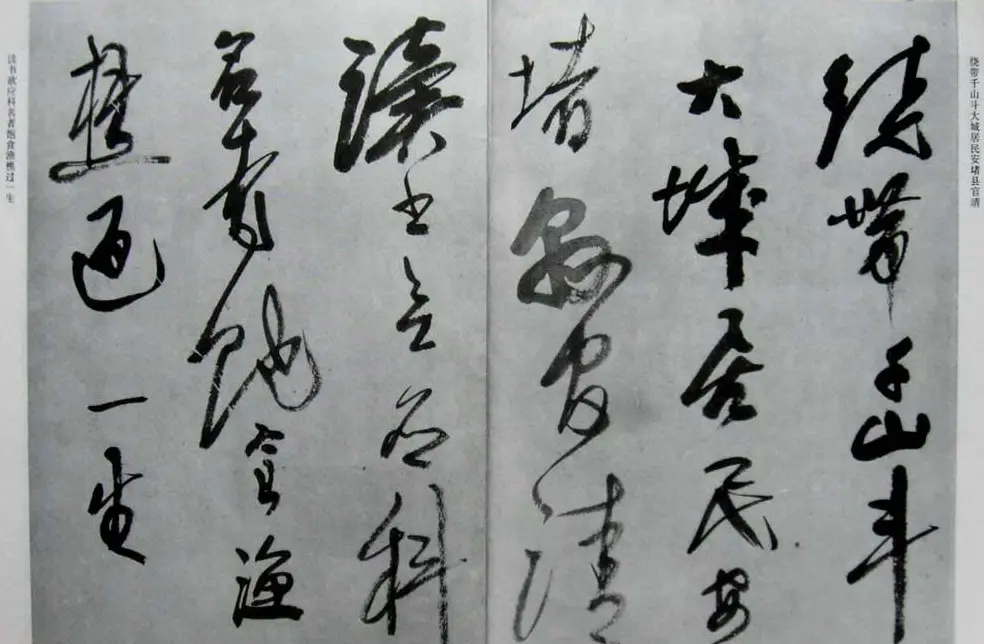 绕带千山斗大城居民安堵县官清
繞帶千山斗
大城居民安
堵縣官清
讀书應科
名者飽食漁
樵過一生
读书欲应科名者饱食渔樵过一生